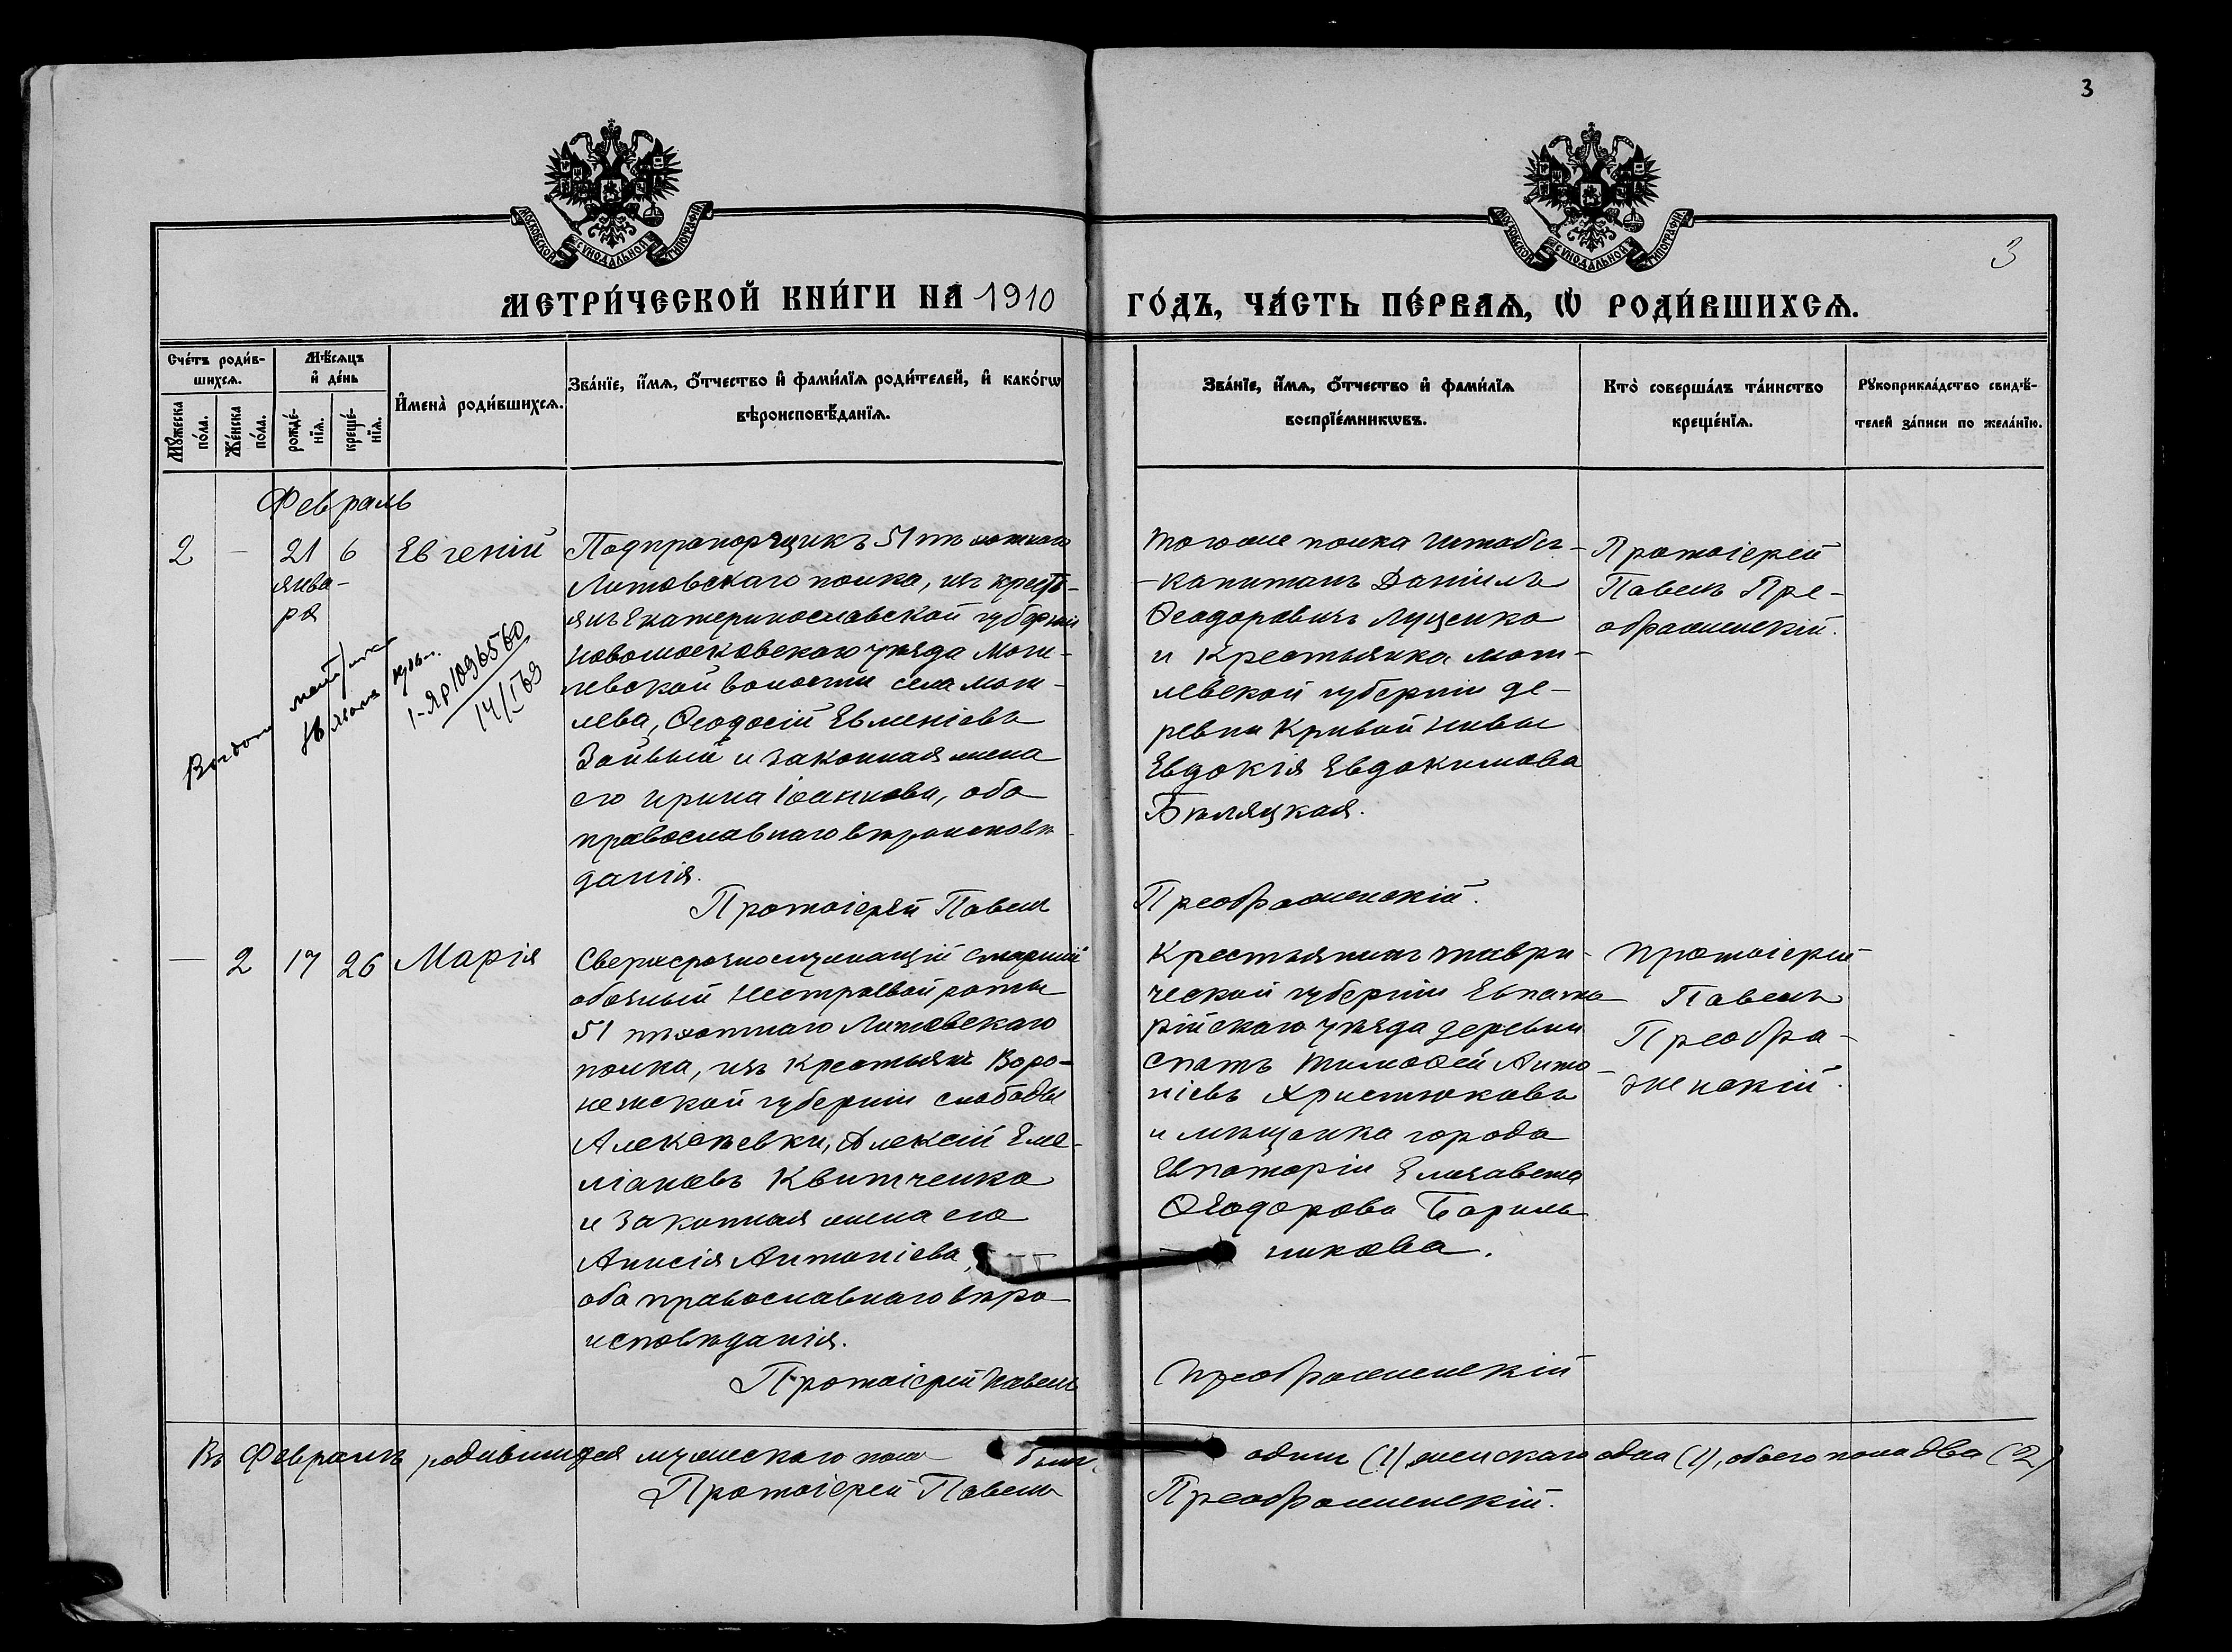 3
МОСКОВСКОЙ СѴНОДАЛЬНОЙ ТИПОГРАФІИ
МОСКОВСКОЙ СѴНОДАЛЬНОЙ ТИПОГРАФІИ
3
МЕТРИ́ЧЕСКОЙ КНИ́ГИ НА 1910 ГО́ДЪ, ЧА́СТЬ ПЕ́РВАѦ, Ѡ҆ РОДИ́ВШИХСѦ.
Сче́тъ роди́в-
шихсѧ.
Мꙋ́жеска по́ла.
Же́нска по́ла.
Мѣ́сѧцъ
и҆ де́нь
рожде́-
нїѧ.
креще́-
нїѧ.
И҆мена̀ роди́вшихсѧ.
Зва́нїе, и҆́мѧ, ѻ҆́тчество и҆ фами́лїѧ роди́телей, и҆ како́гѡ
вѣроисповѣ́данїѧ.
Зва́нїе, и҆́мѧ, ѻ҆́тчество и҆ фами́лїѧ
воспрїе́мникѡвъ.
Кто̀ соверша́лъ та́инство
креще́нїѧ.
Рꙋкоприкла́дство свидѣ́-
телей за́писи по жела́нїю.
Февраль
2 — 21 6 Евгеній
янва-
ря
1-ЯР 1096560
14/I 69
Подпрапорщикъ 51 пѣхотнаго
Литовскаго полка, изъ кресть-
янъ Екатеринославской губерніи
Новомосковскаго уѣзда Моги-
левской волости села Моги-
лева, Ѳеодосій Евменіевъ
Зайвый и законная жена
его Ирина Іоаннова, оба
православнаго вѣроисповѣ-
данія.
Протоіерей Павелъ Преображенскій.
Того же полка Штабсъ-
-капитанъ Даніилъ
Ѳеодоровичъ Луценко
и крестьянка Моги-
левской губерніи де-
ревни Кривой Нивы
Евдокія Евдокимова
Бѣляцкая.
Протоіерей
Павелъ Пре-
ображенскій.
— 2 17 26 Марія
Сверхсрочнослужащій старшій
обозный Нестроевой роты
51 пѣхотнаго Литовскаго
полка, изъ крестьянъ Воро-
нежской губерніи слободы
Алексѣевки, Алексій Еме-
ліановъ Квитченко
и законная жена его
Анисія Антоніева,
оба православнаго вѣро-
исповѣданія.
Протоіерей Павелъ Преображенскій
Крестьянинъ Таври-
ческой губерніи Евпато-
рійскаго уѣзда деревни
Спатъ Тимоѳей Анто-
ніевъ Христюковъ
и мѣщанка города
Евпаторіи Елизавета
Ѳеодорова Бариль-
никова.
Протоіерей
Павелъ
Преобра-
женскій.
Въ Февралѣ родившихся мужескаго пола былъ одинъ (1), женскаго одна (1), обоего пола два (2)
Протоіерей Павелъ Преображенскій.